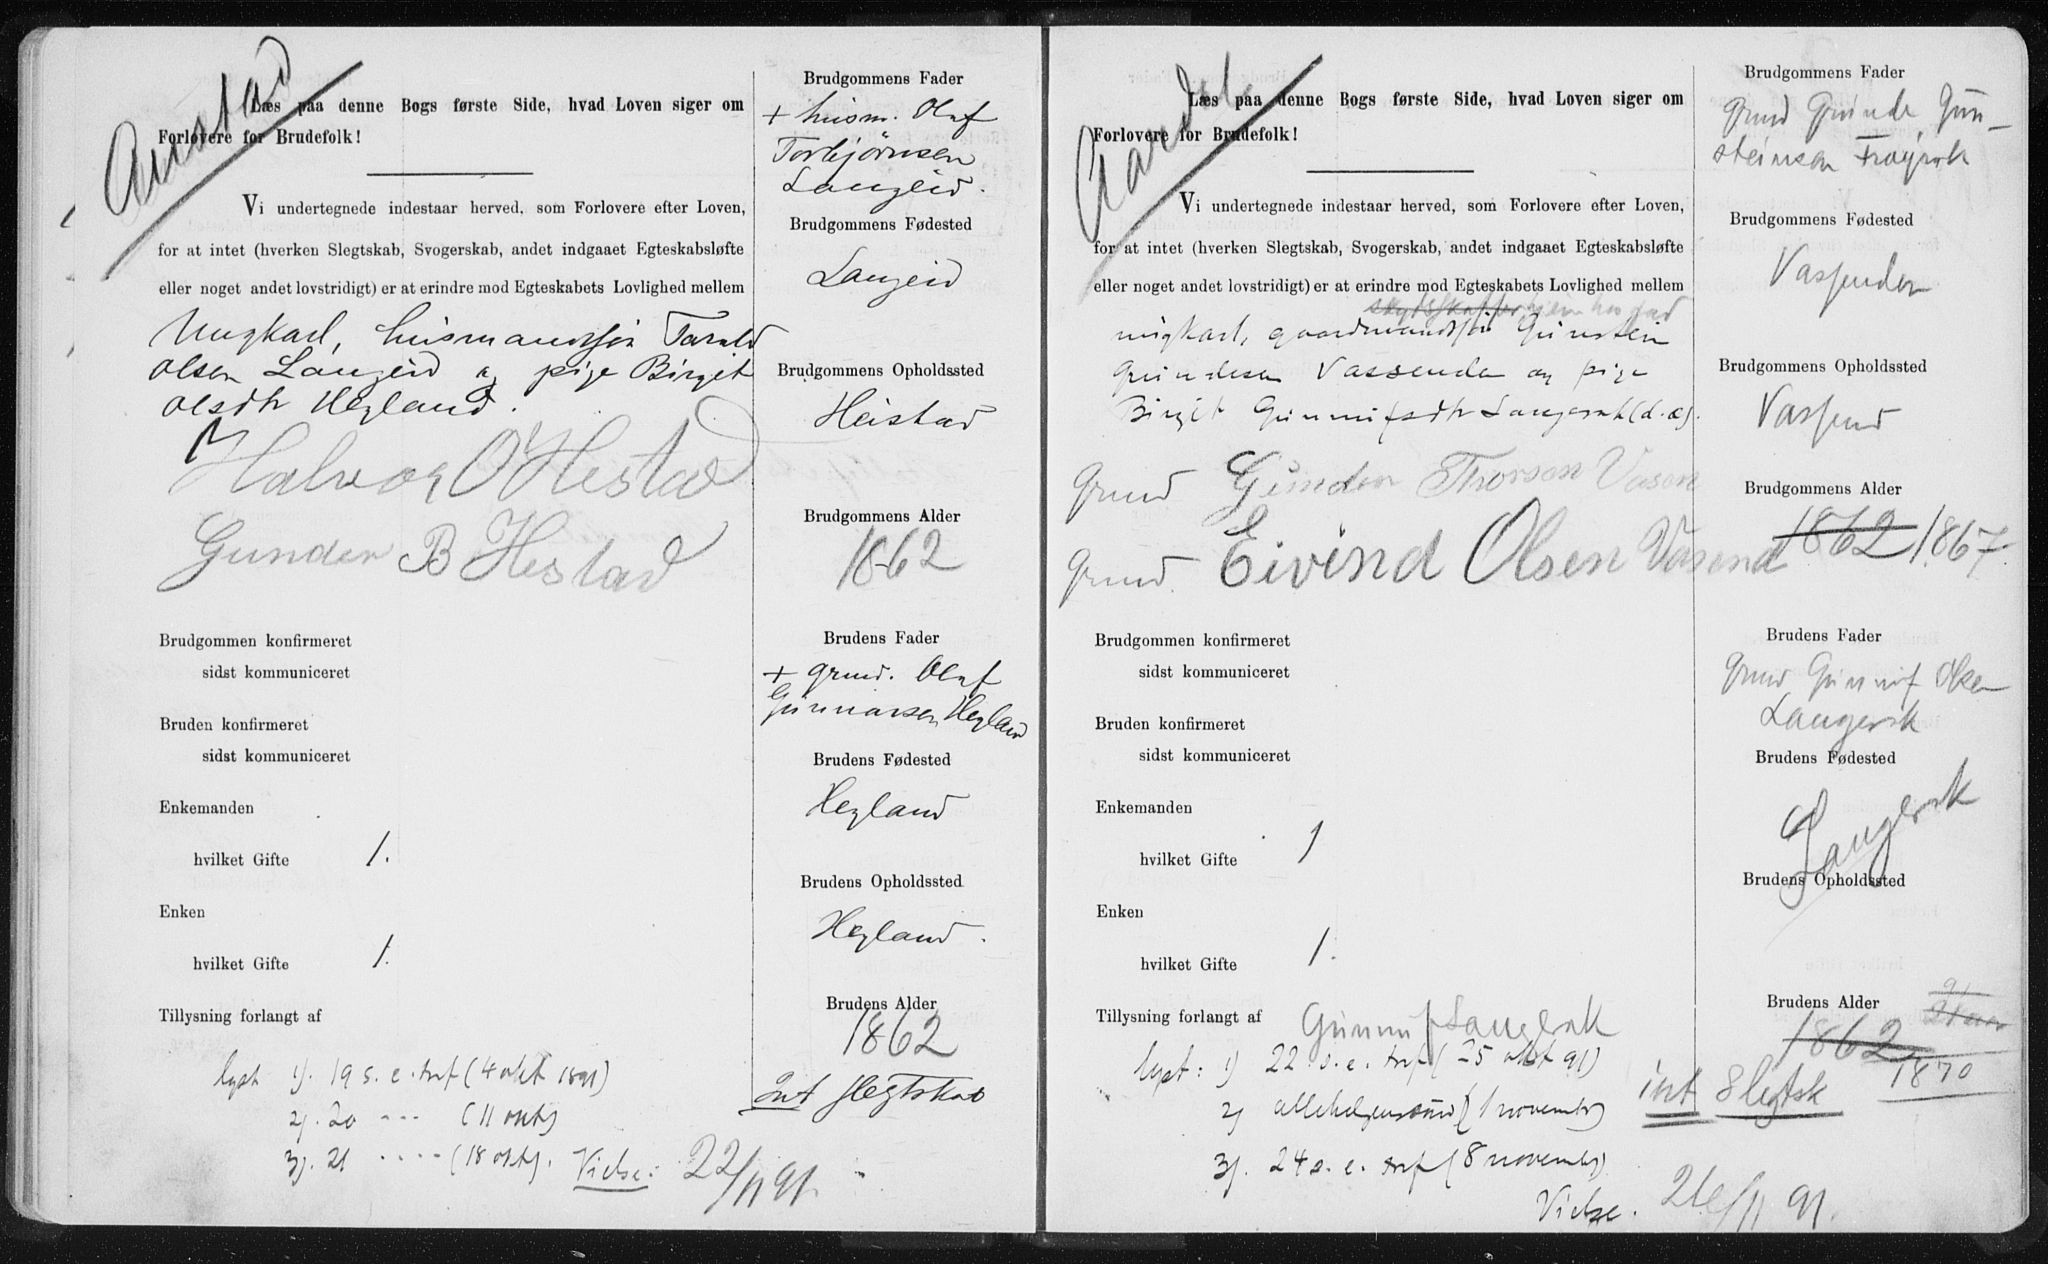 Austad
Læs paa denne Bogs første Side, hvad Loven siger om
Forlovere for Brudefolk!
Vi undertegnede indestaar herved, som Forlovere efter Loven,
for at intet (hverken Slegtskab, Svogerskab, andet indgaaet Egteskabsløfte
eller noget andet lovstridigt) er at erindre mod Egteskabets Lovlighed mellem
Ungkarl, husmandssøn Tarald
Olsen Langeid og pige Birgit
Olsdtr Hegland.
Halvor O Hestad
Gunder B Hestad
Brudgommen konfirmeret
sidst kommuniceret
Bruden konfirmeret
sidst kommuniceret
Enkemanden
hvilket Gifte 1.
Enken
hvilket Gifte 1.
Tillysning forlangt af
lyst 1). 19 s. e. tref (4 okt 1891)
2). 20 --- (11 okt)
3). 21 ---- (18 okt). Vielse: 22/11 91.
Brudgommens Fader
+ husm. Olaf
Torbjørnsen
Langeid.
Brudgommens Fødested
Langeid
Brudgommens Opholdssted
Heistad
Brudgommens Alder
1862
Brudens Fader
+ grmd. Olaf
Gunnarsen Hegland
Brudens Fødested
Hegland
Brudens Opholdssted
Hegland.
Brudens Alder
1862
Int slegtskab
Læs paa denne Bogs første Side, hvad Loven siger om
Forlovere for Brudefolk!
Vi undertegnede indestaar herved, som Forlovere efter Loven,
for at intet (hverken Slegtskab, Svogerskab, andet indgaaet Egteskabsløfte
eller noget andet lovstridigt) er at erindre mod Egteskabets Lovlighed mellem
skydsskaffer hjem hos fad
ungkarl, gaardmandssøn Gunstein
Gundesen Vassenden og pige
Birgit Gunnufsdtr Langerak (d. æ).
Grmd Gunder Thorson Vasen
Grmd. Eivind Olsen Vasend
Brudgommen konfirmeret
sidst kommuniceret
Bruden konfirmeret
sidst kommuniceret
Enkemanden
hvilket Gifte 1
Enken
hvilket Gifte 1.
Tillysning forlangt af Gunnuf Langerak
lyst: 1) 22 s. e. tref (25 okt 91)
2) allehelgenssønd (1 november)
3). 24 s. e. tref (8 november)
Vielse. 26/11 91.
Brudgommens Fader
Grmd Gunde Gun-
steinsen
Brudgommens Fødested
Vassenden
Brudgommens Opholdssted
Vassend
Brudgommens Alder
1862 1867.
Brudens Fader
Grmd Gunnuf Olsen
Langerak
Brudens Fødested
Langerak
Brudens Opholdssted
Brudens Alder
1862
1870
int Slegtsk